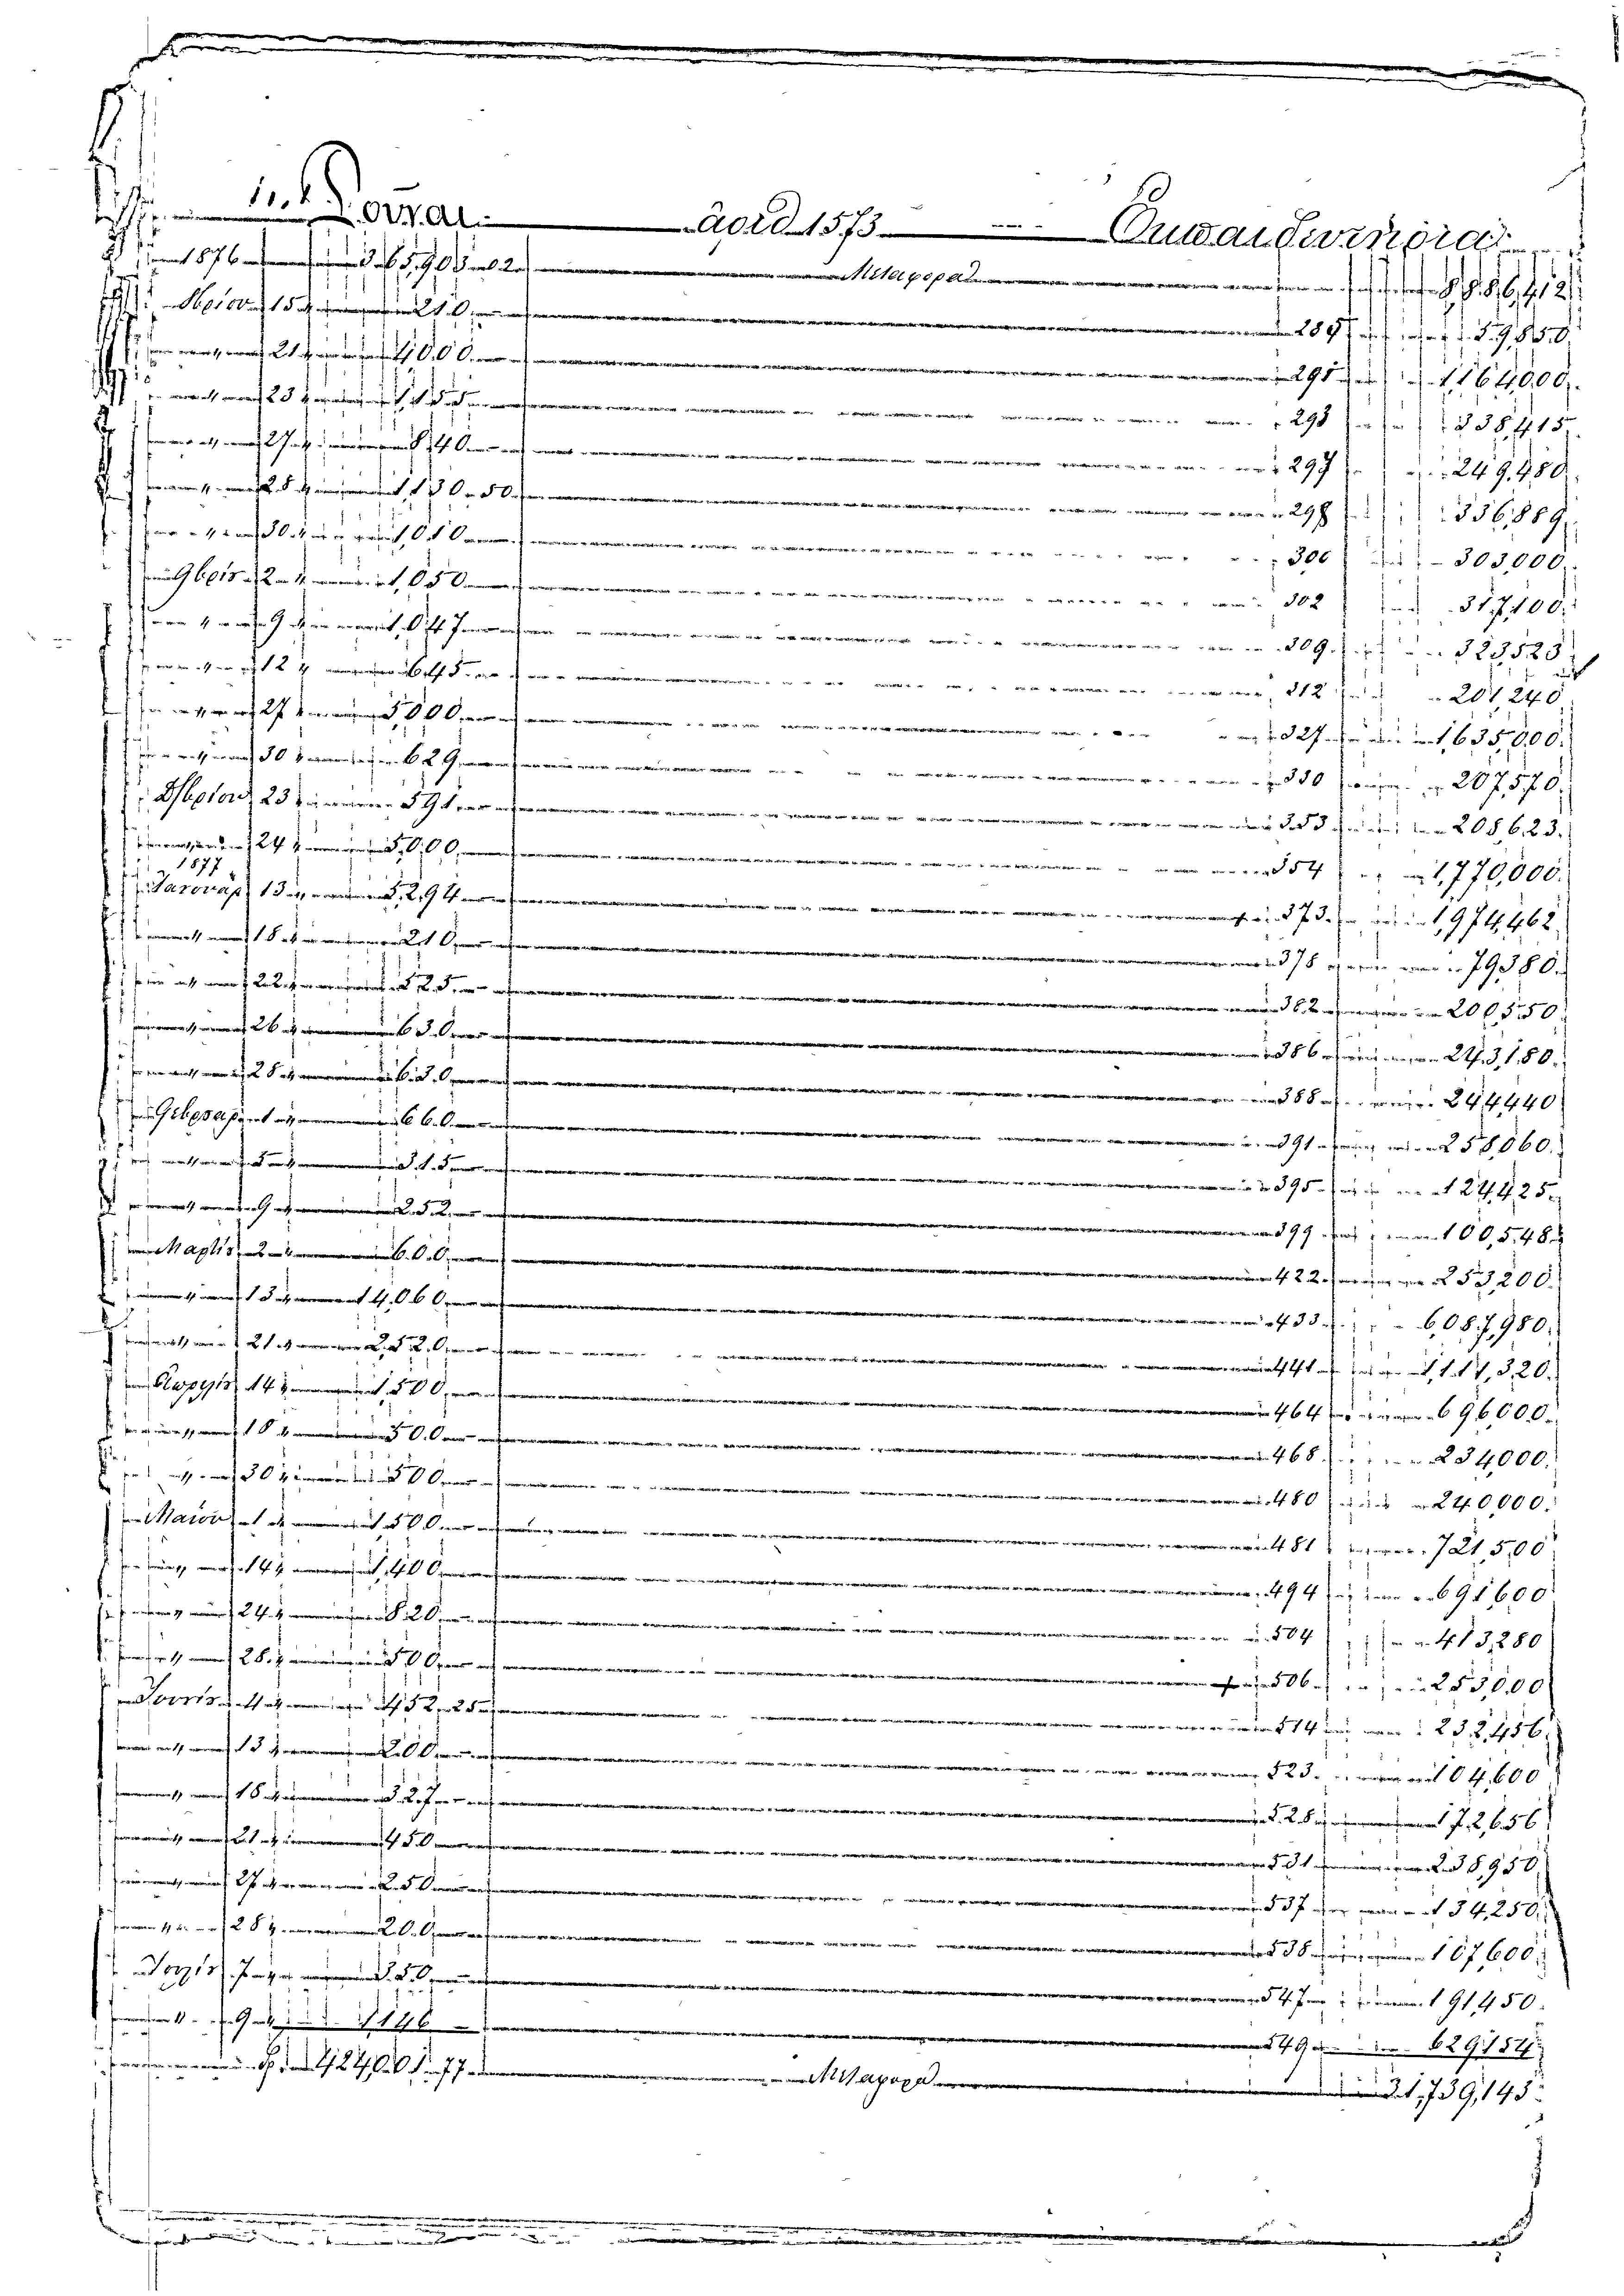 Δοῦναι ἀριθ 1573 Ἐναντιομέρια
1876 365,903 02 Μεταφορὰ 8,886,412
15 " 210 285 59,850
" 21 " 4,000 291 1,164,000
" 23 " 1,155 293 338,415
" 27 " 840 297 249,480
" 28 " 1,130 50 298 336,889
" 30 " 1,010 300 303,000
9βρίου 2 " 1,050 302 317,100
" 9 " 1,047 309 323,523
" 12 " 645 312 201,240
" 27 " 5,000 327 1,635,000
" 30 " 629 330 207,570
23 " 591 353 208,623
" 24 " 5,000 354 1,770,000
1877
Ἰανουαρ 13 " 5,294 373 1,974,462
" 18 " 210 378 79,380
" 22 " 525 382 200,550
" 26 " 630 386 243,180
" 28 " 630 388 244,440
Φεβρουαρ 1 " 660 391 258,060
" 5 " 315 395 124,425
" 9 " 252 399 100,548
Μαρτίου 2 " 600 422 253,200
" 13 " 14,060 433 6,087,980
" 21 " 2,520 441 1,111,320
Ἀπριλίου 14 " 1,500 464 696,000
" 18 " 500 468 234,000
" 30 " 500 480 240,000
Μαΐου 1 " 1,500 481 721,500
" 14 " 1,400 494 691,600
" 24 " 820 504 413,280
" 28 " 500 506 253,000
Ἰουνίου 4 " 452 25 514 232,456
" 13 " 200 523 104,600
" 18 " 327 528 172,656
" 21 " 450 531 238,950
" 27 " 250 537 134,250
" 28 " 200 538 107,600
Ἰουλίου 7 " 350 547 191,450
" 9 " 1146 549 629,154
424,001 77 Μεταφορὰ 31,739,143